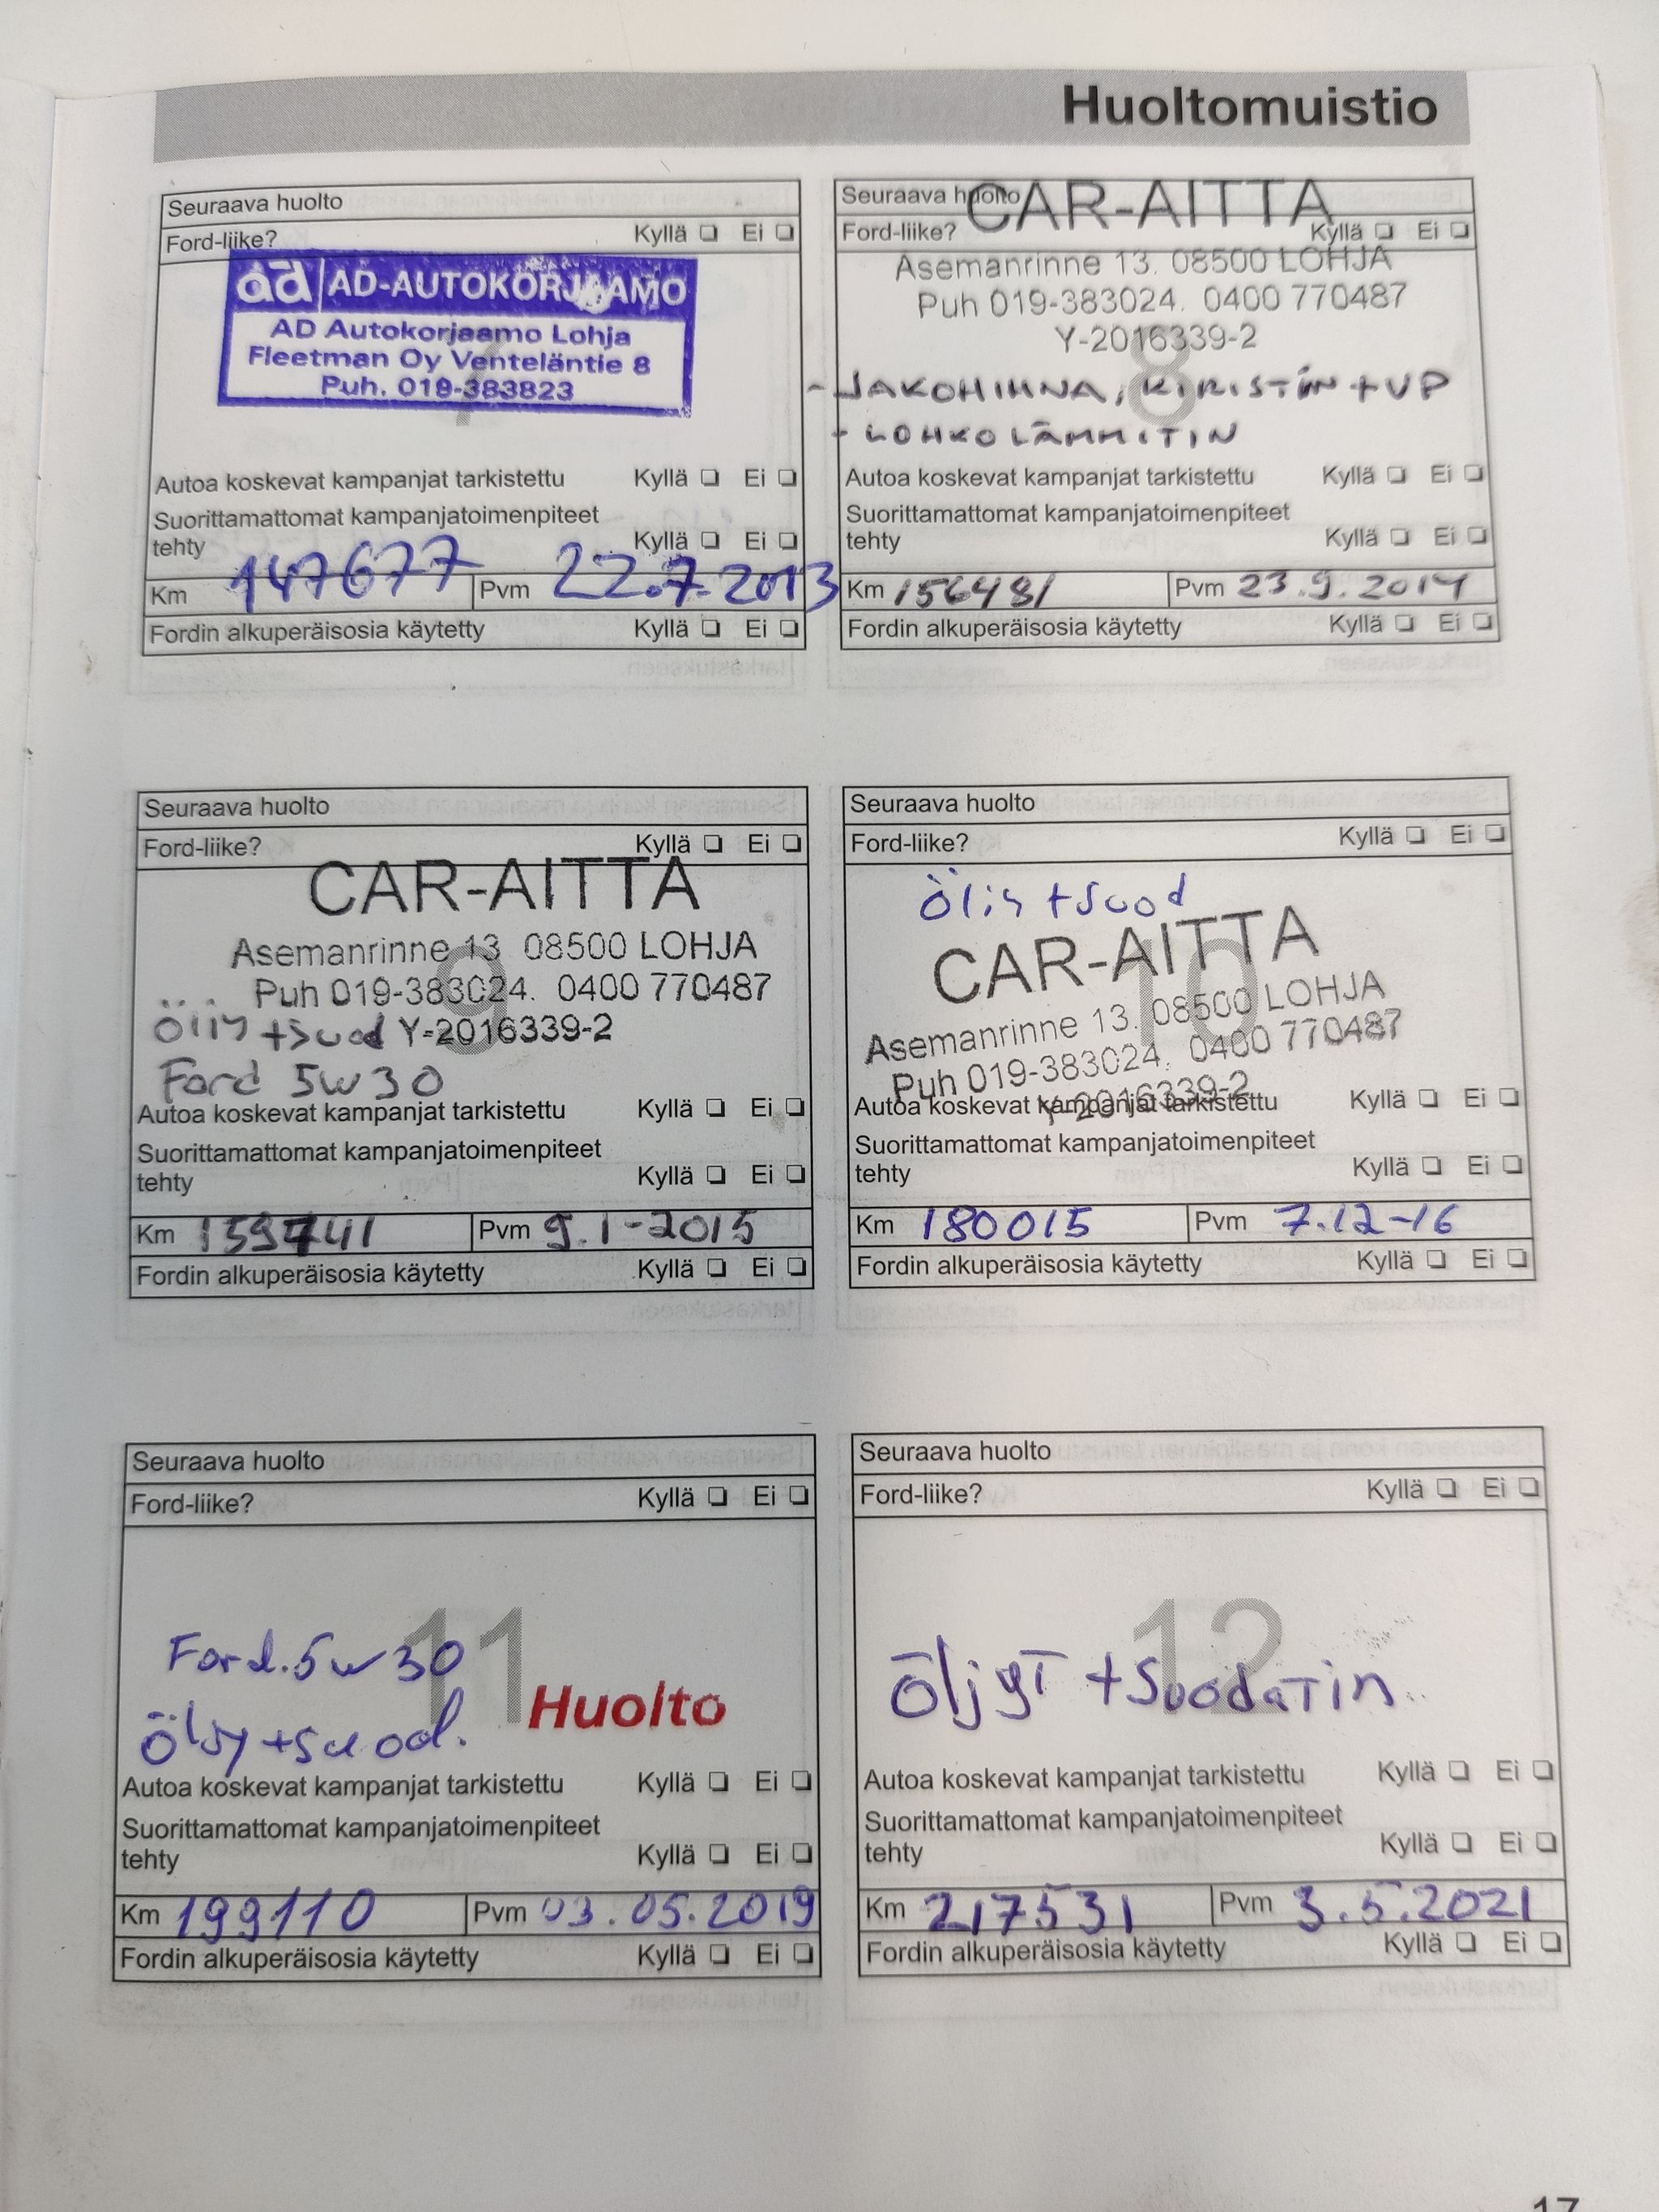 Huoltomuistio
Seuraava huolto
Ford-liike? Kyllä Ei
ad AD-AUTOKORJAAMO
AD Autokorjaamo Lohja
Fleetman Oy Venteläntie 8
Puh. 019-383823
7
Autoa koskevat kampanjat tarkistettu Kyllä Ei
Suorittamattomat kampanjatoimenpiteet
tehty Kyllä Ei
Km 147677 Pvm 22.7.2013
Fordin alkuperäisosia käytetty Kyllä Ei
Seuraava huolto
CAR-AITTA
Ford-liike? Kyllä Ei
Asemanrinne 13. 08500 LOHJA
Puh 019-383024. 0400 770487
Y-2016339-2
8
- JAKOHIHNA, KIRISTIN + VP
- LOHKOLÄMMITIN
Autoa koskevat kampanjat tarkistettu Kyllä Ei
Suorittamattomat kampanjatoimenpiteet
tehty Kyllä Ei
Km 156481 Pvm 23.9.2014
Fordin alkuperäisosia käytetty Kyllä Ei
Seuraava huolto
Ford-liike? Kyllä Ei
CAR-AITTA
Asemanrinne 13 08500 LOHJA
9
Puh 019-383024. 0400 770487
Öljy + suod Y-2016339-2
Ford 5w30
Autoa koskevat kampanjat tarkistettu Kyllä Ei
Suorittamattomat kampanjatoimenpiteet
tehty Kyllä Ei
Km 159741 Pvm 9.1-2015
Fordin alkuperäisosia käytetty Kyllä Ei
Seuraava huolto
Ford-liike? Kyllä Ei
Öljy + suod
CAR-AITTA
10
Asemanrinne 13. 08500 LOHJA
Puh 019-383024. 0400 770487
Y-2016339-2
Autoa koskevat kampanjat tarkistettu Kyllä Ei
Suorittamattomat kampanjatoimenpiteet
tehty Kyllä Ei
Km 180015 Pvm 7.12-16
Fordin alkuperäisosia käytetty Kyllä Ei
Seuraava huolto
Ford-liike? Kyllä Ei
11
Ford.5w30
Huolto
Öljy + suod.
Autoa koskevat kampanjat tarkistettu Kyllä Ei
Suorittamattomat kampanjatoimenpiteet
tehty Kyllä Ei
Km 199110 Pvm 03.05.2019
Fordin alkuperäisosia käytetty Kyllä Ei
Seuraava huolto
Ford-liike? Kyllä Ei
12
Öljyt + Suodatin
Autoa koskevat kampanjat tarkistettu Kyllä Ei
Suorittamattomat kampanjatoimenpiteet
tehty Kyllä Ei
Km 217531 Pvm 3.5.2021
Fordin alkuperäisosia käytetty Kyllä Ei
17